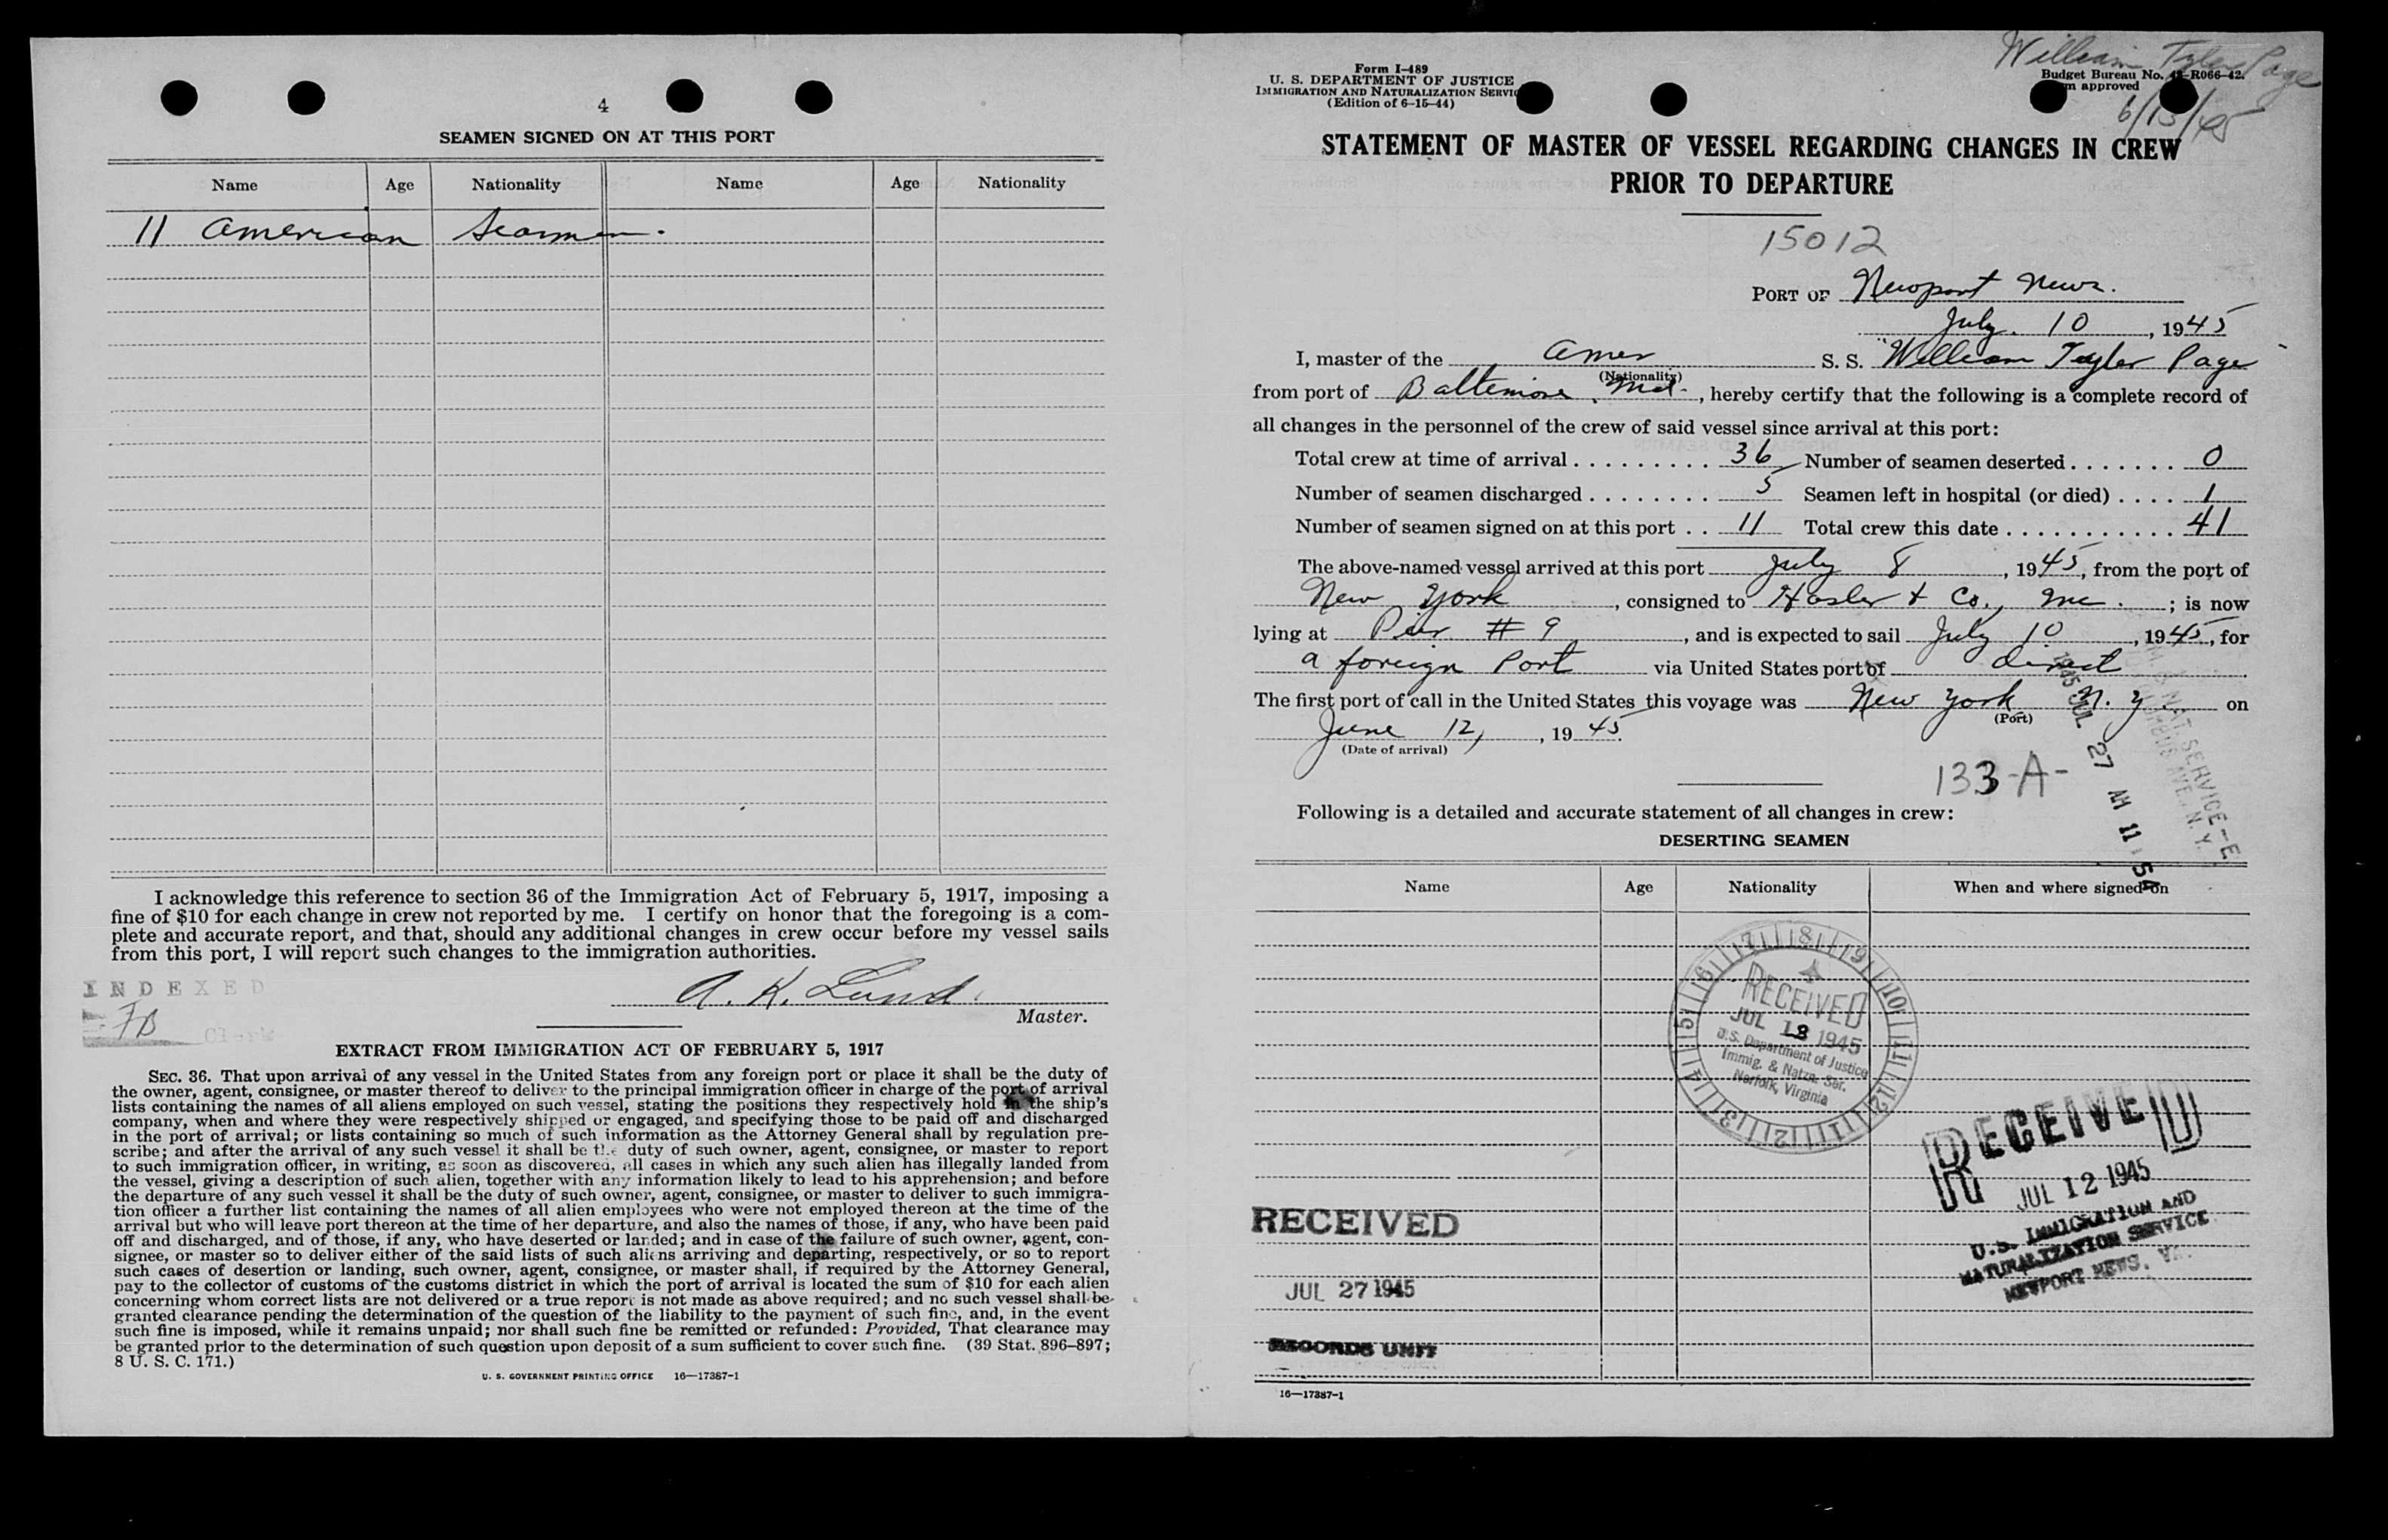 4
SEAMEN SIGNED ON AT THIS PORT
Name Age Nationality Name Age Nationality
11 American Seamen.
I acknowledge this reference to section 36 of the Immigration Act of February 5, 1917, imposing a
fine of $10 for each change in crew not reported by me. I certify on honor that the foregoing is a com-
plete and accurate report, and that, should any additional changes in crew occur before my vessel sails
from this port, I will report such changes to the immigration authorities.
INDEXED
A. K. Lund
Master.
FB
Clerk
EXTRACT FROM IMMIGRATION ACT OF FEBRUARY 5, 1917
SEC. 36. That upon arrival of any vessel in the United States from any foreign port or place it shall be the duty of
the owner, agent, consignee, or master thereof to deliver to the principal immigration officer in charge of the port of arrival
lists containing the names of all aliens employed on such vessel, stating the positions they respectively hold in the ship's
company, when and where they were respectively shipped or engaged, and specifying those to be paid off and discharged
in the port of arrival; or lists containing so much of such information as the Attorney General shall by regulation pre-
scribe; and after the arrival of any such vessel it shall be the duty of such owner, agent, consignee, or master to report
to such immigration officer, in writing, as soon as discovered, all cases in which any such alien has illegally landed from
the vessel, giving a description of such alien, together with any information likely to lead to his apprehension; and before
the departure of any such vessel it shall be the duty of such owner, agent, consignee, or master to deliver to such immigra-
tion officer a further list containing the names of all alien employees who were not employed thereon at the time of the
arrival but who will leave port thereon at the time of her departure, and also the names of those, if any, who have been paid
off and discharged, and of those, if any, who have deserted or landed; and in case of the failure of such owner, agent, con-
signee, or master so to deliver either of the said lists of such aliens arriving and departing, respectively, or so to report
such cases of desertion or landing, such owner, agent, consignee, or master shall, if required by the Attorney General,
pay to the collector of customs of the customs district in which the port of arrival is located the sum of $10 for each alien
concerning whom correct lists are not delivered or a true report is not made as above required; and no such vessel shall be
granted clearance pending the determination of the question of the liability to the payment of such fine, and, in the event
such fine is imposed, while it remains unpaid; nor shall such fine be remitted or refunded: Provided, That clearance may
be granted prior to the determination of such question upon deposit of a sum sufficient to cover such fine. (39 Stat. 896–897;
8 U. S. C. 171.)
U. S. GOVERNMENT PRINTING OFFICE 16—17387-1
William Tyler Page
6/15/45
Form I–489
U. S. DEPARTMENT OF JUSTICE
IMMIGRATION AND NATURALIZATION SERVIC
(Edition of 6–15–44)
Budget Bureau No. 43–R066–42.
approved
STATEMENT OF MASTER OF VESSEL REGARDING CHANGES IN CREW
PRIOR TO DEPARTURE
15012
PORT OF Newport News.
July. 10, 1945
I, master of the Amer S. S. "William Tyler Page"
(Nationality)
from port of Baltimore, Md., hereby certify that the following is a complete record of
all changes in the personnel of the crew of said vessel since arrival at this port:
Total crew at time of arrival . . . . . . . . . 36 Number of seamen deserted . . . . . . . 0
Number of seamen discharged . . . . . . . . 5 Seamen left in hospital (or died) . . . . 1
Number of seamen signed on at this port . . 11 Total crew this date . . . . . . . . . . . 41
The above-named vessel arrived at this port July 8, 1945, from the port of
New York, consigned to Hasler & Co., Inc.; is now
lying at Pier # 9, and is expected to sail July 10, 1945, for
a foreign Port via United States port of direct
The first port of call in the United States this voyage was New York N. Y on
(Port)
June 12, 1945.
(Date of arrival)
133-A-
1945 JUL 27 AM 11 54
NAT. SERVICE-E
AVE., N. Y.
Following is a detailed and accurate statement of all changes in crew:
DESERTING SEAMEN
Name Age Nationality When and where signed on
1 2 3 4 5 6 7 8 9 10 11 12
RECEIVED
JUL 18 1945
U.S. Department of Justice
Immig. & Natzn. Ser.
Norfolk, Virginia
RECEIVED
JUL 12 1945
U.S. IMMIGRATION AND
NATURALIZATION SERVICE
NEWPORT NEWS, VA.
RECEIVED
JUL 27 1945
RECORDS UNIT
16—17387-1